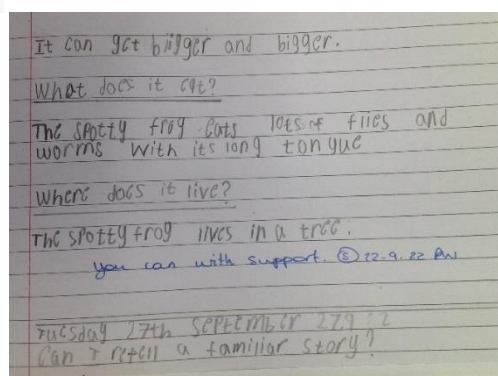 It can get biigger and bigger.
What does it eat?
The spotty frog eats lots of flies and
worms with its long tongue
Where does it live?
The spotty frog lives in a tree.
you can with support. S 22.9.22 PM
Tuesday 27th September 27.9.22
Can I retell a familiar story?